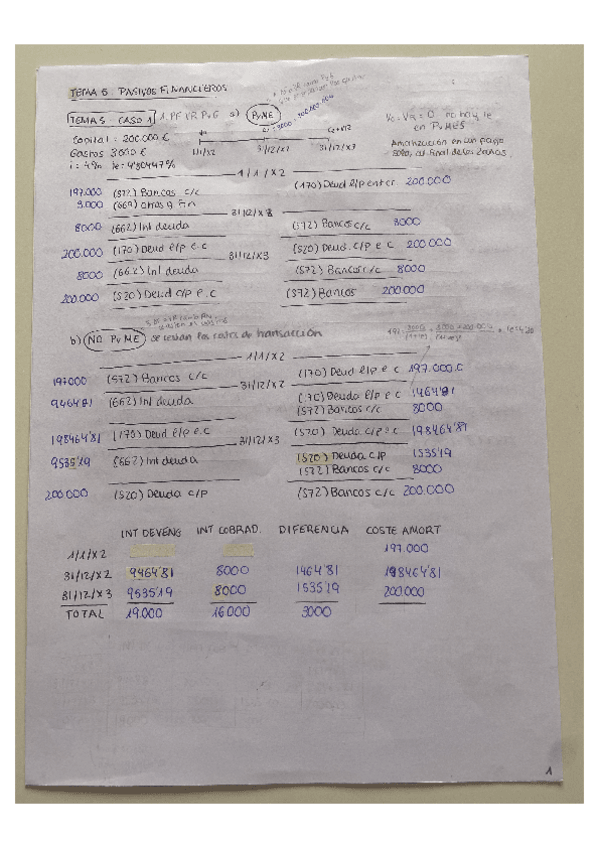 TEMA 5: PASIVOS FINANCIEROS
TEMA 5 - CASO 1 1. PF VR PyG a) PYME
Capital = 200.000 € Vc - Va = 0 no hay
en PYMES
Gastos 3000 € 1/1/X2 31/12/X2 31/12/X3 Amortización en un pago
i = 4% ie = 4'80447% al final de los 2 años
1/1/X2
197.000 (572) Bancos c/c (170) Deud l/p ent cr 200.000
3.000 (669) otros g fin
31/12/X2
8000 (662) Int deuda (572) Bancos c/c 8000
200.000 (170) Deud l/p e.c 31/12/X3 (520) Deud. c/p e c 200.000
8000 (662) Int deuda (572) Bancos c/c 8000
200.000 (520) Deud c/p e.c (572) Bancos 200.000
b) NO PYME se restan los costes de transacción
1/1/X2
197000 (572) Bancos c/c (170) Deud l/p e.c 197.000
31/12/X2
9464'81 (662) Int deuda (170) Deuda l/p e c 1464'81
(572) Bancos c/c 8000
198464'81 (170) Deud l/p e.c 31/12/X3 (520) Deuda c/p e c 198464'81
9535'19 (662) Int deuda (520) Deuda c/p 1535'19
(572) Bancos c/c 8000
200.000 (520) Deuda c/p (572) Bancos c/c 200.000
INT DEVENG INT COBRAD. DIFERENCIA COSTE AMORT
1/1/X2 197.000
31/12/X2 9464'81 8000 1464'81 198464'81
31/12/X3 9535'19 8000 1535'19 200.000
TOTAL 19.000 16000 3000
1